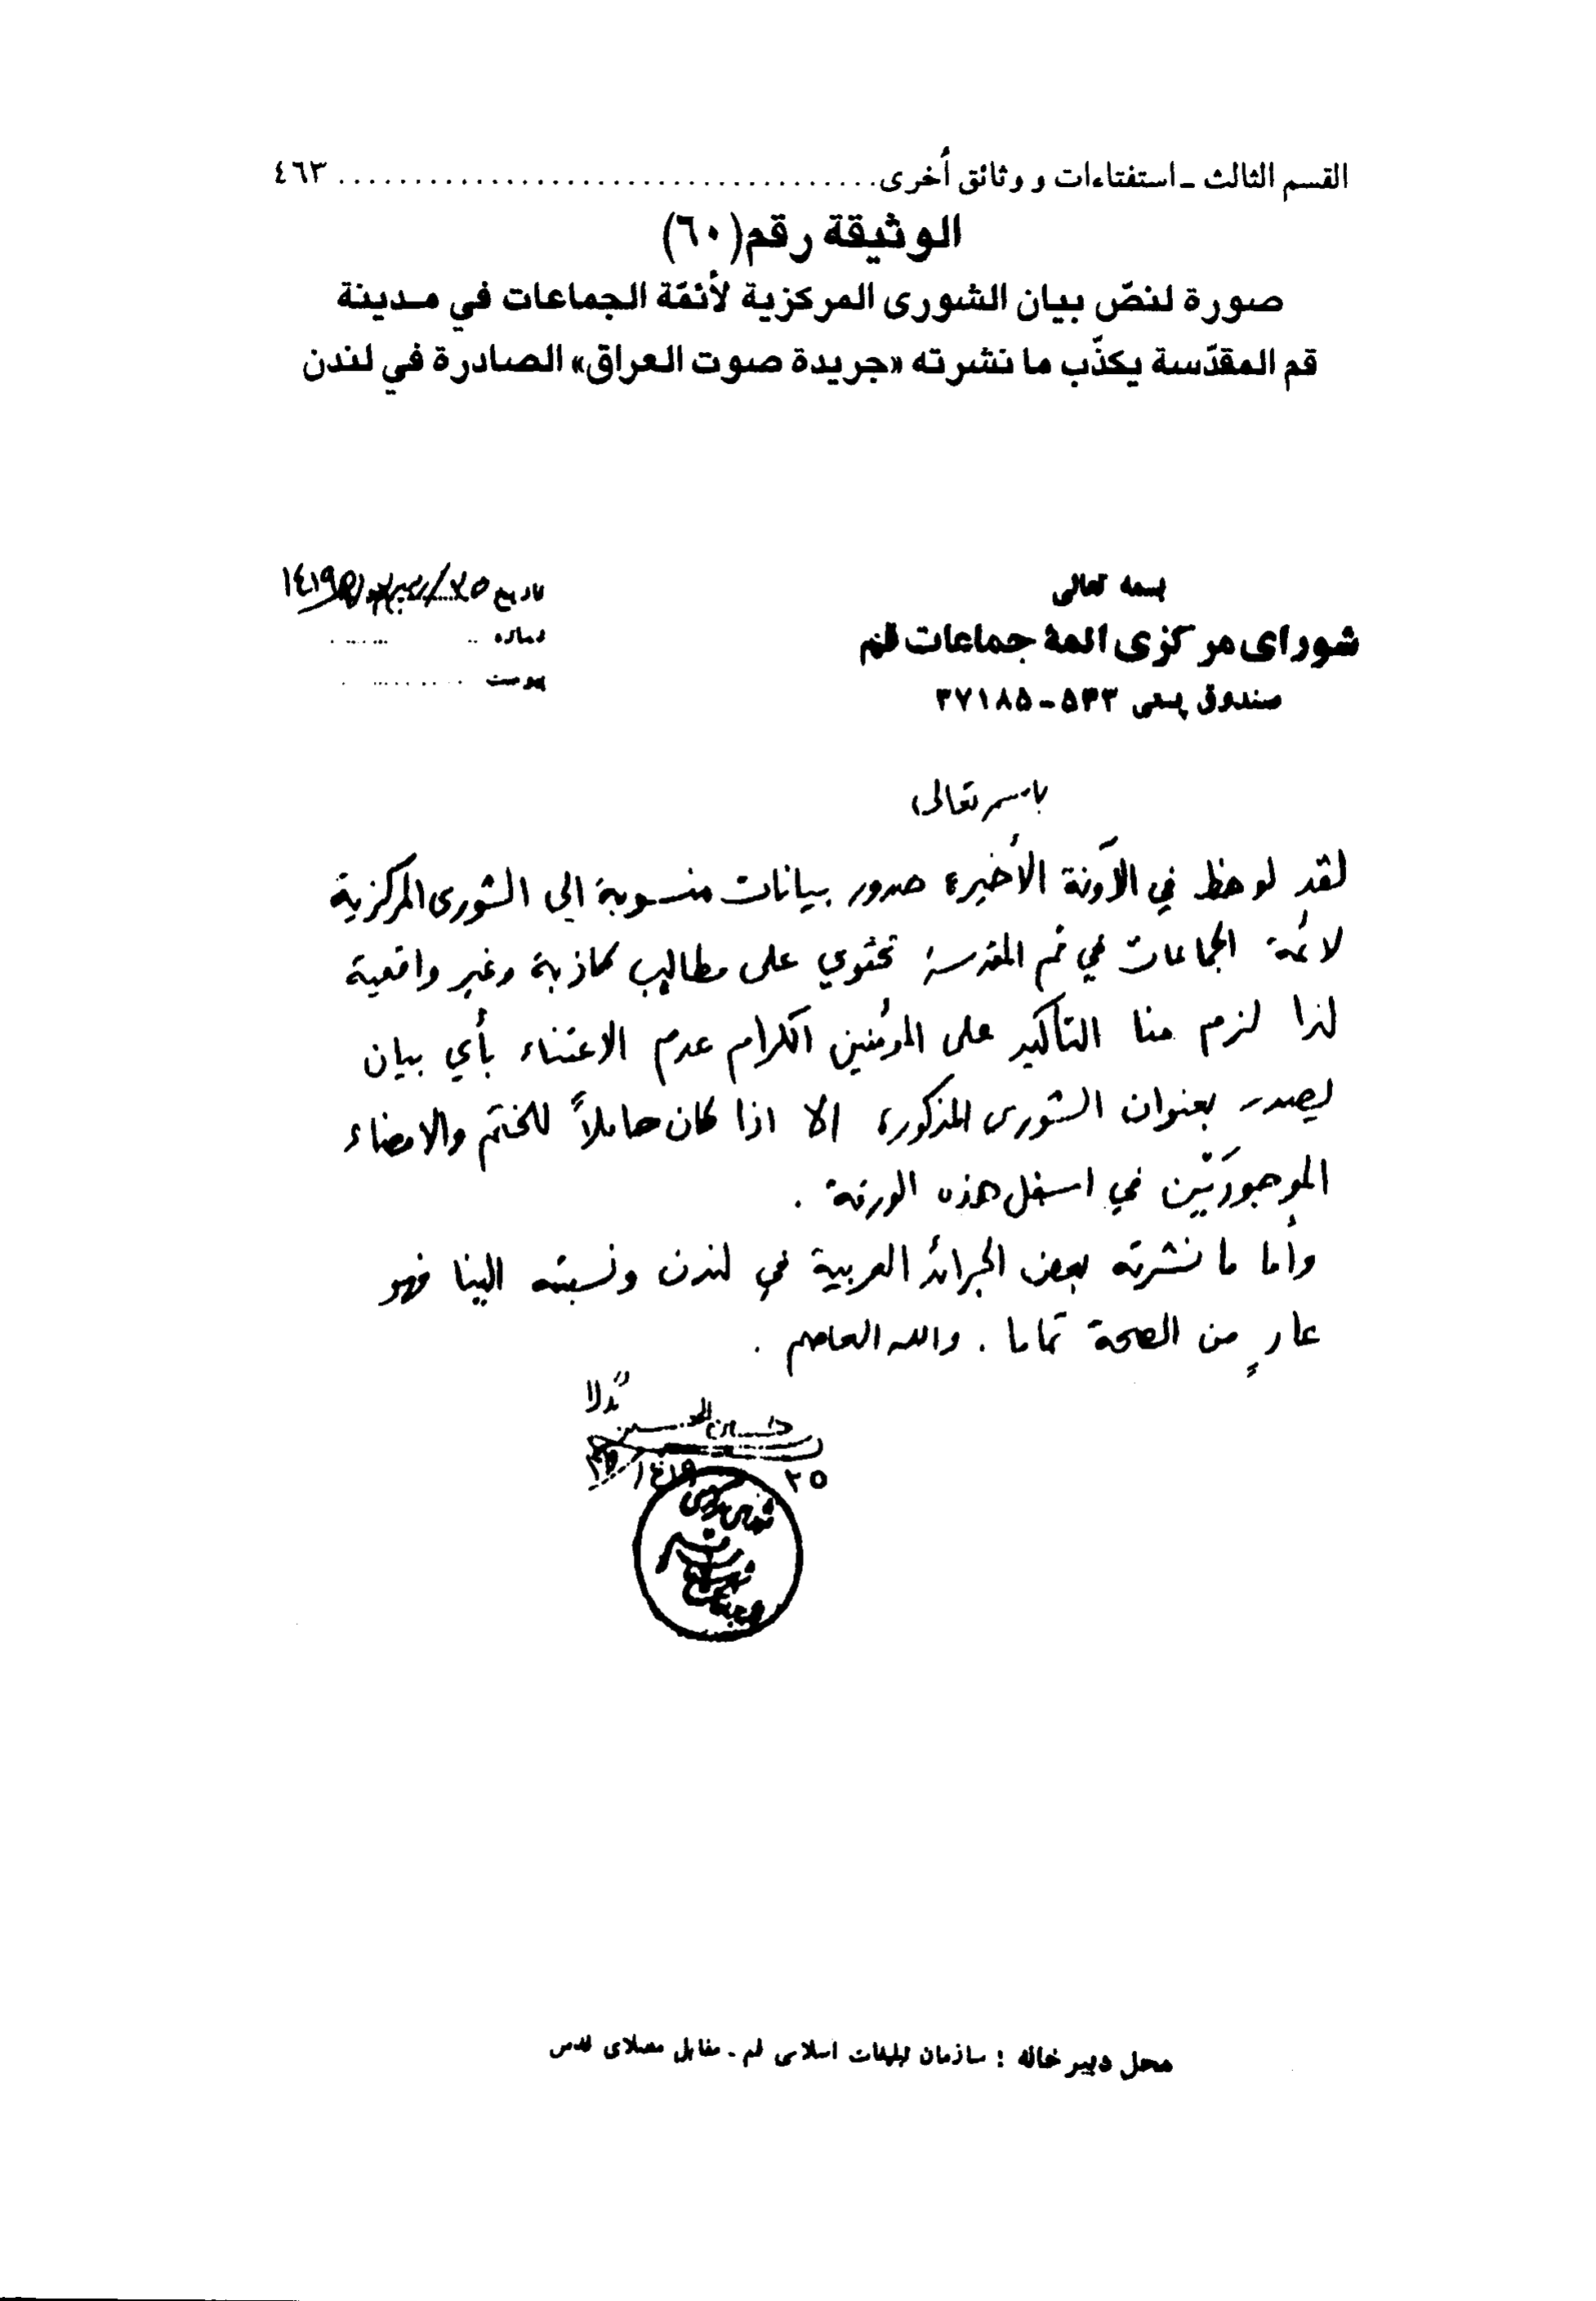 القسم الثالث ـ استفتاءات و وثائق أخرى .................................... ٤٦٣
الوثيقة رقم (٦٠)
صورة لنصّ بيان الشورى المركزية لأئمّة الجماعات في مـدينة
قم المقدّسة يكذّب ما نشرته «جريدة صوت العراق» الصادرة في لندن
بسمه تعالى
شورای مرکزی ائمهٔ جماعات قم
صندوق پستی ۵۳۳-۳۷۱۸۵
تاریخ ٢٥ / ١٤١٩
شماره
پیوست
باسمه تعالى
لقد لوحظ في الآونة الأخيرة صدور بيانات منسوبة إلى الشورى المركزية
لائمة الجماعات في قم المقدسة تحتوي على مطاليب كاذبة وغير واقعية
لذا لزم منا التأكيد على المؤمنين الكرام عدم الاعتناء بأي بيان
يصدر بعنوان الشورى المذكورة الا اذا كان حاملاً للختم والامضاء
الموجودَيْن في اسفل هذه الورقة .
وأما ما نشرته بعض الجرائد العربية في لندن ونسبته الينا فهو
عارٍ من الصحة تماما . والله العاصم .
٢٥ ١٤١٩
محل دبیرخانه : سازمان تبلیغات اسلامی قم - مقابل مصلای قدس